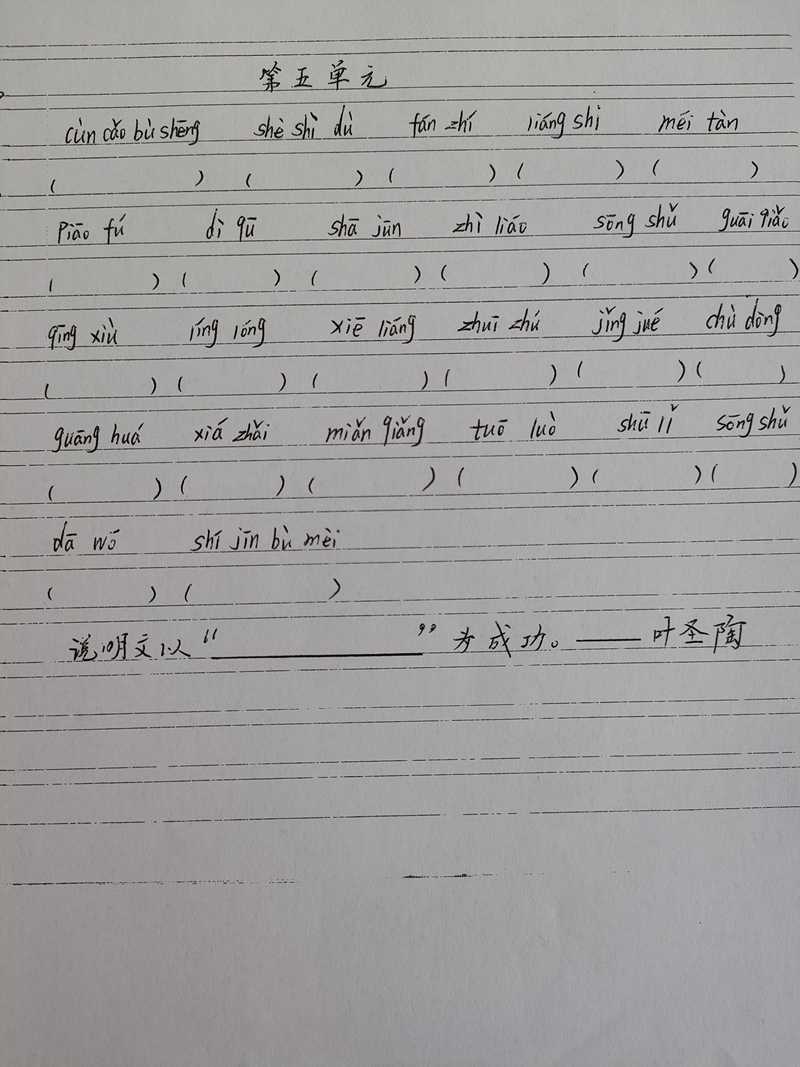 第五单元
cùn cǎo bù shēng shè shì dù fán zhí liáng shi méi tàn
( ) ( ) ( ) ( ) ( )
piāo fú dì qū shā jūn zhì liáo sōng shǔ guāi qiǎo
( ) ( ) ( ) ( ) ( ) ( )
qīng xiù líng lóng xiē liáng zhuī zhú jǐng jué chù dòng
( ) ( ) ( ) ( ) ( ) ( )
guāng huá xiá zhǎi miǎn qiǎng tuō luò shū lǐ sōng shǔ
( ) ( ) ( ) ( ) ( ) ( )
dā wō shí jīn bù mèi
( ) ( )
说明文以“__________”为成功。——叶圣陶